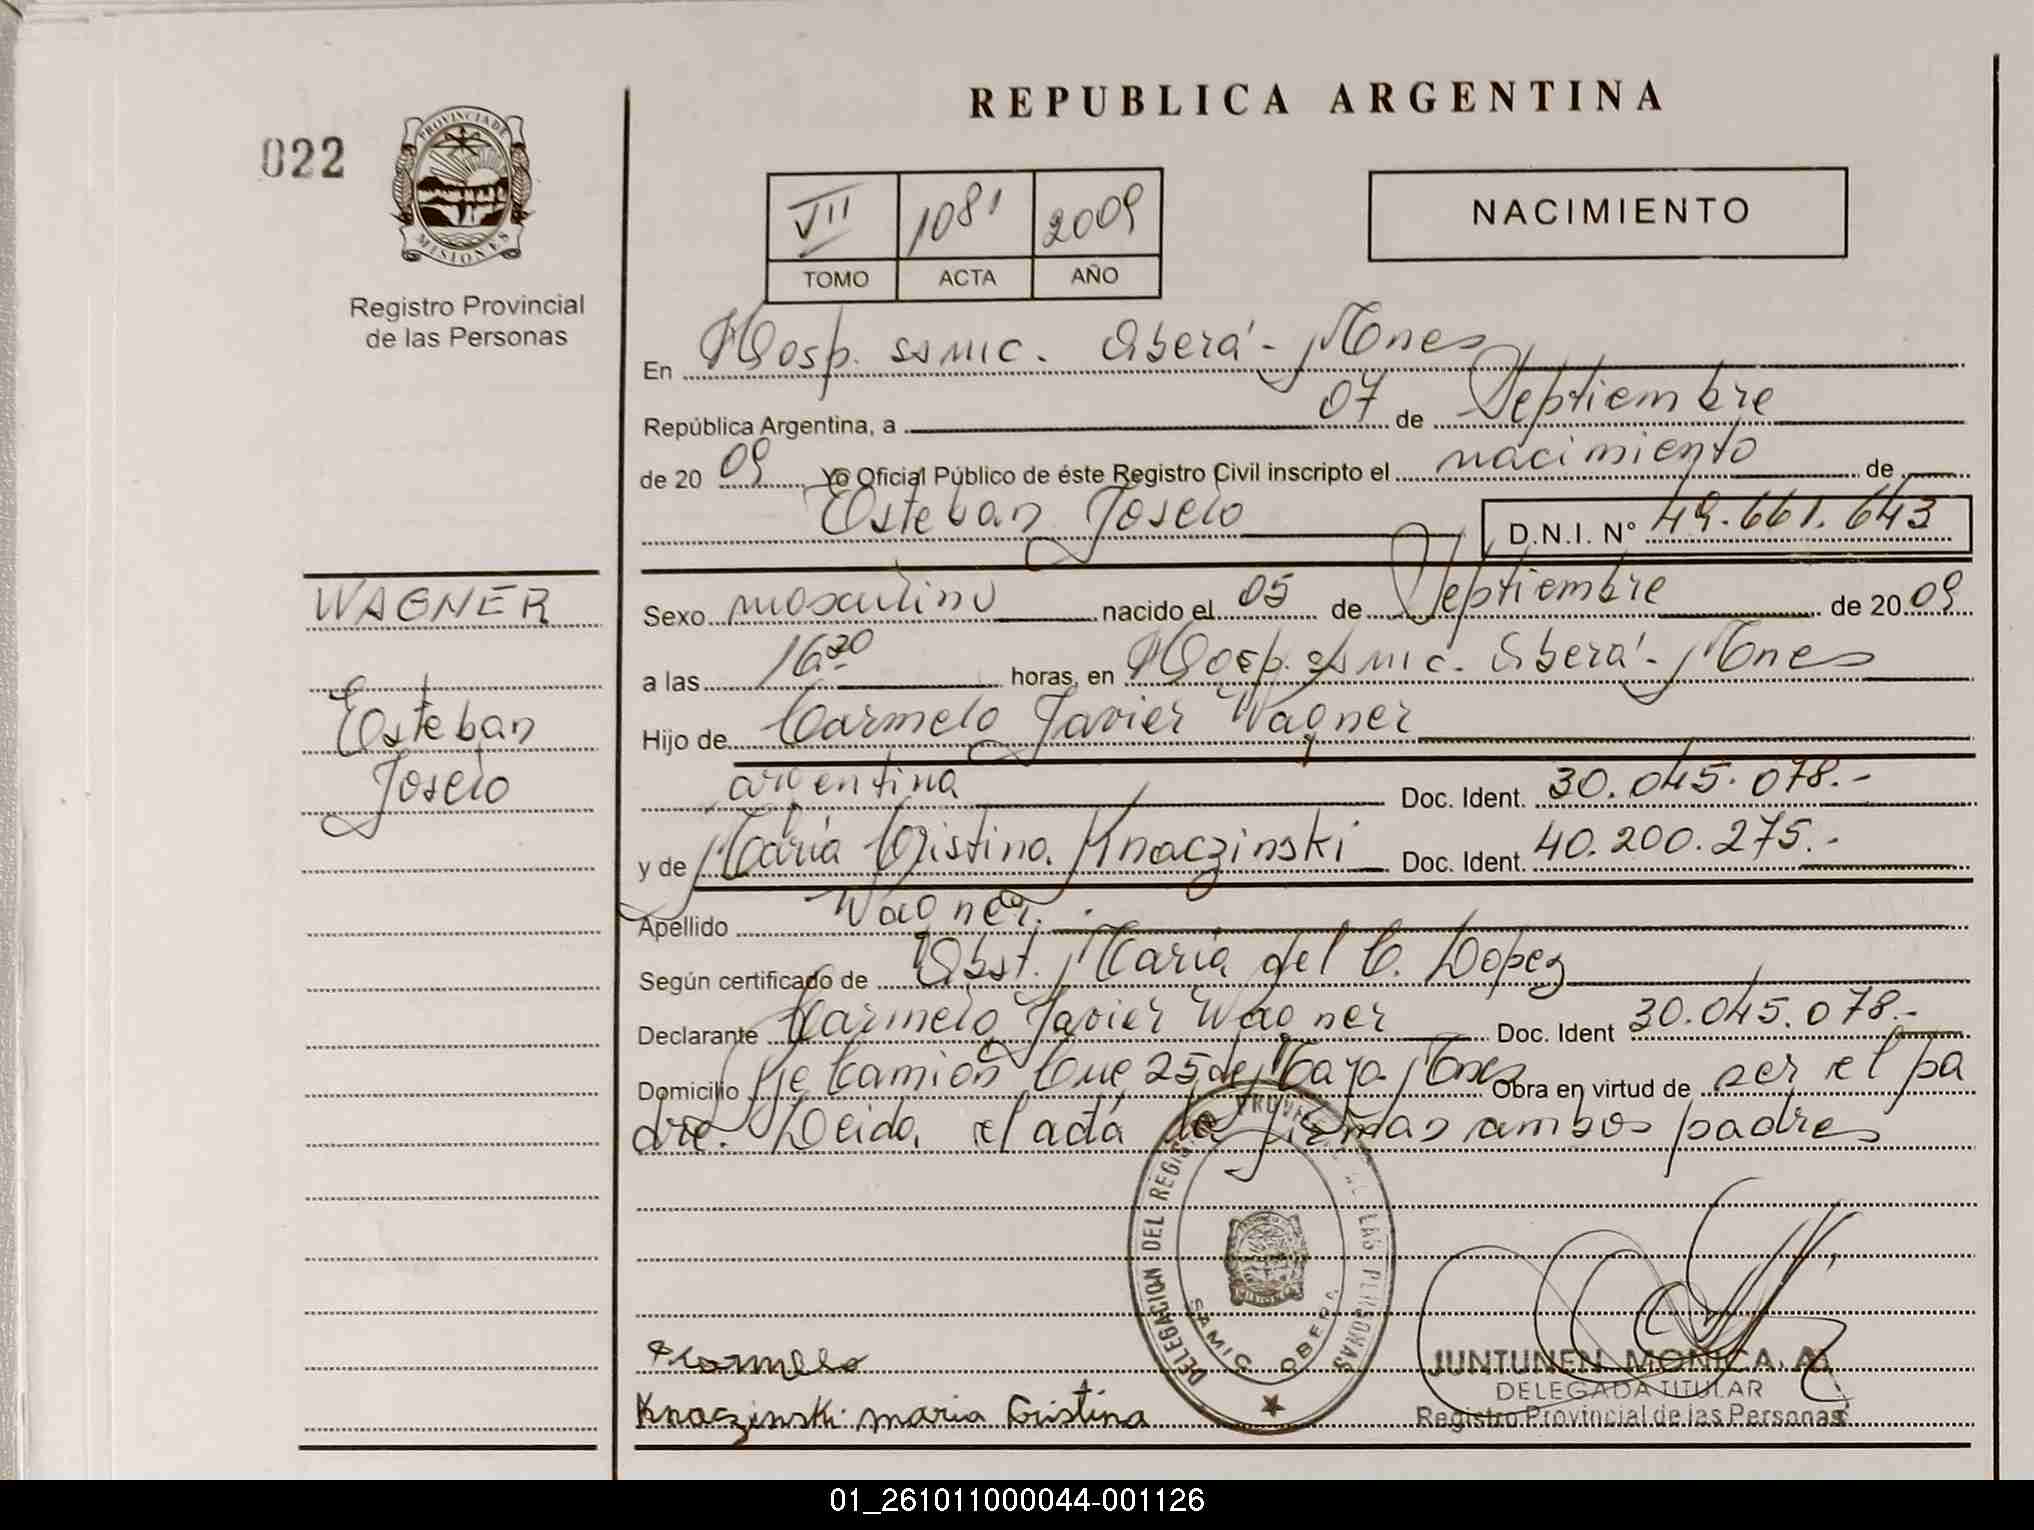 REPUBLICA ARGENTINA
022
PROVINCIA DE
MISIONES
Registro Provincial
de las Personas
VII 1081 2009
TOMO ACTA AÑO
NACIMIENTO
En Hosp. SAMIC. Oberá - Mnes
República Argentina, a 07 de Septiembre
de 2009 Yo Oficial Público de éste Registro Civil inscripto el nacimiento de
Esteban Joselo D.N.I. N° 49.661.643
WAGNER
Esteban
Joselo
Sexo masculino nacido el 05 de Septiembre de 2009
a las 16:30 horas, en Hosp. SAMIC. Oberá - Mnes
Hijo de Carmelo Javier Wagner
argentina Doc. Ident. 30.045.078.-
y de María Cristina Knaczinski Doc. Ident. 40.200.275.-
Apellido Wagner.
Según certificado de Obst. María del C. Lopez
Declarante Carmelo Javier Wagner Doc. Ident 30.045.078.-
Domicilio Pje Camión Cue 25 de Mayo Mnes Obra en virtud de ser el pa
dre. Leida el acta la firman ambos padres
DELEGACION DEL REGISTRO PROVINCIAL DE LAS PERSONAS
SAMIC OBERA
Carmelo
Knaczinski maria Cristina
JUNTUNEN MONICA. A.
DELEGADA TITULAR
Registro Provincial de las Personas
01_261011000044-001126